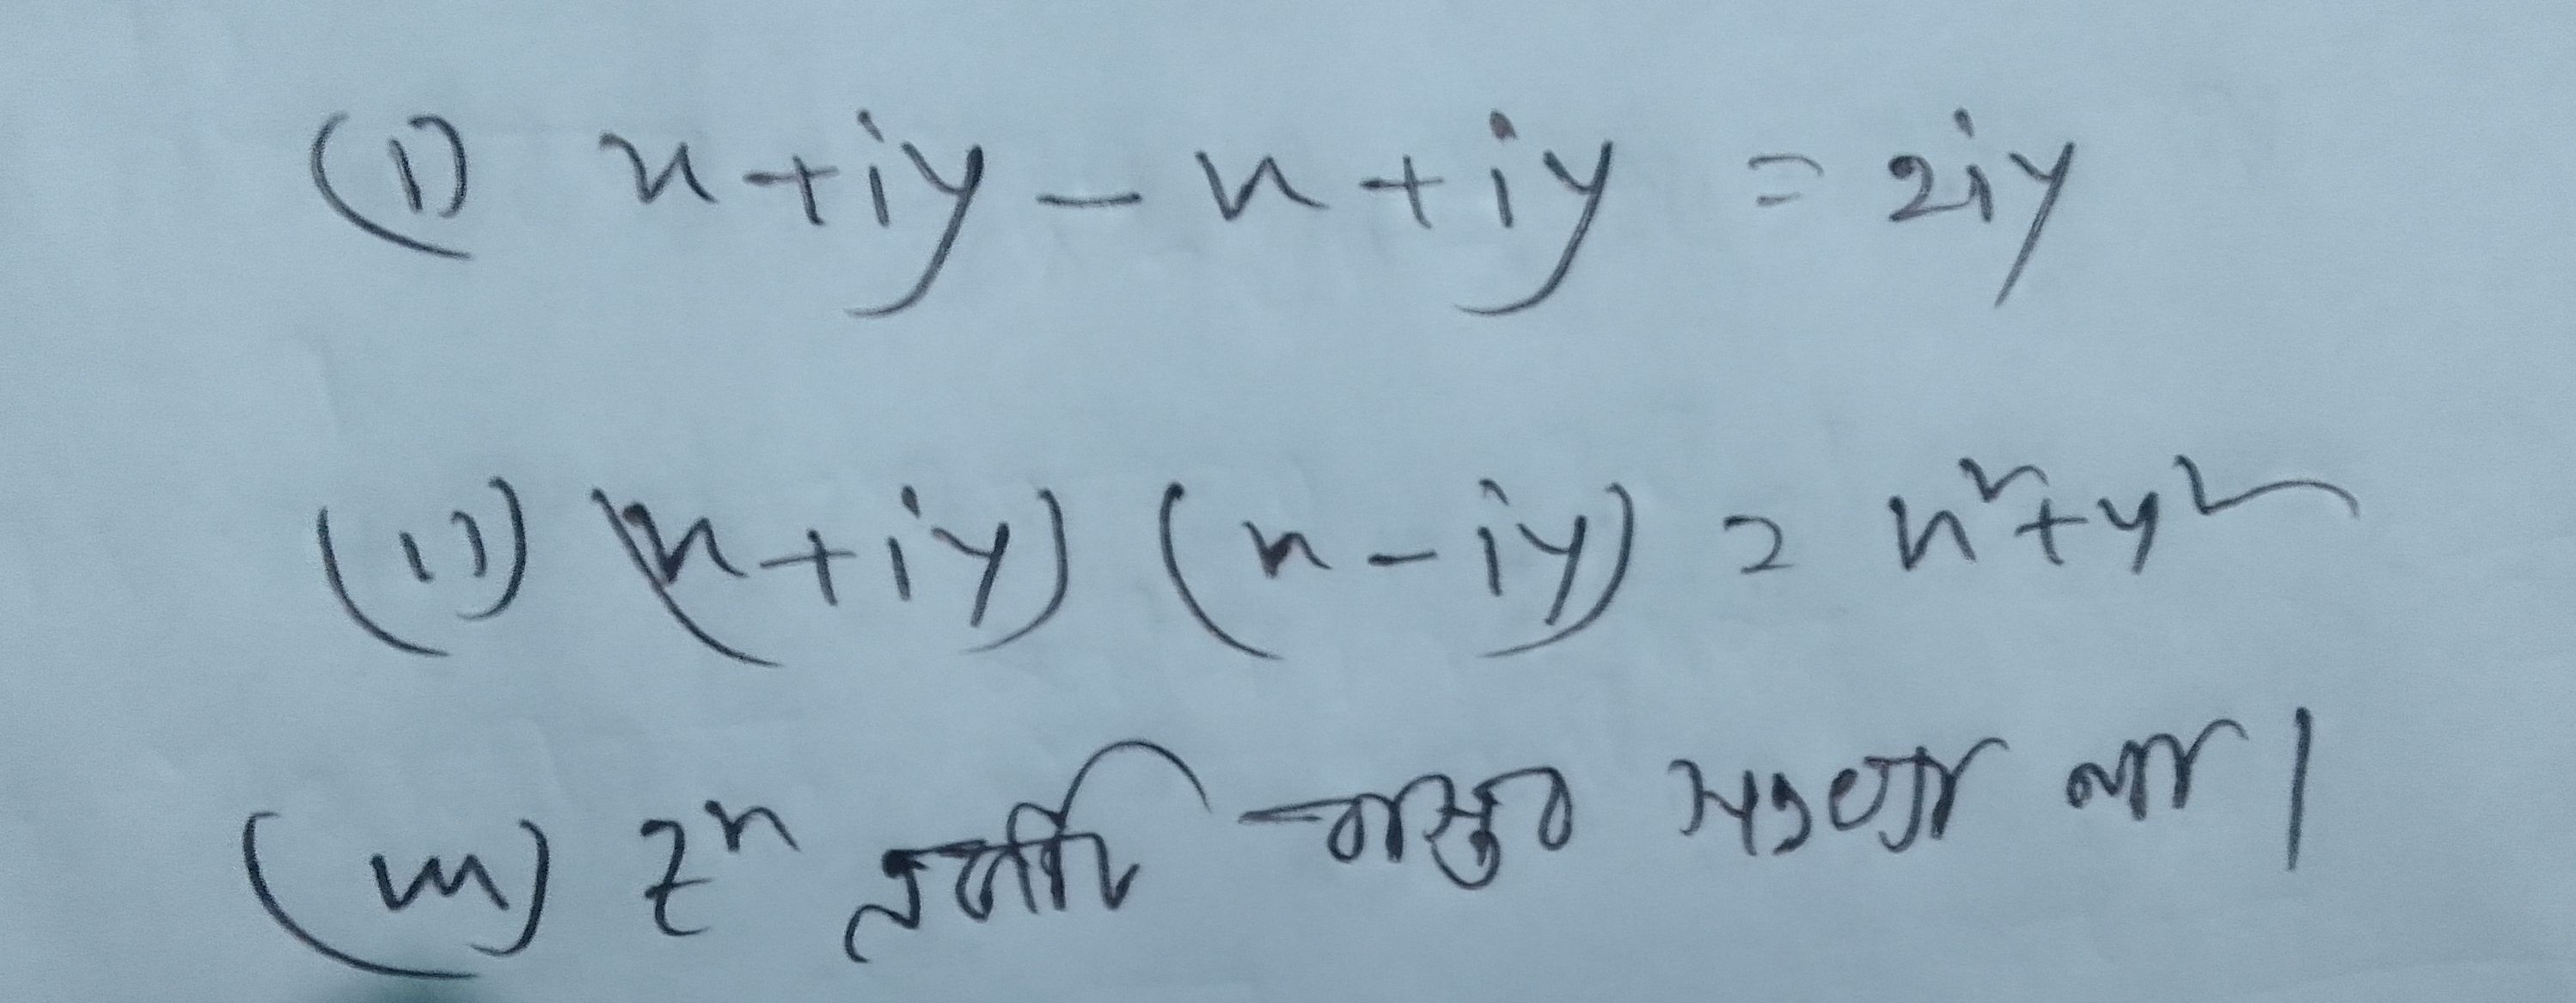 (i) x+iy-x+iy = 2iy
(ii) (x+iy) (x-iy) = x²+y²
(iii) zⁿ একটি বাস্তব সংখ্যা না।